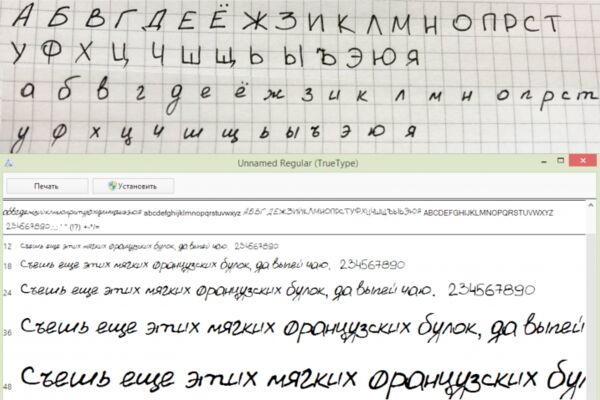 А Б В Г Д Е Ё Ж З И К Л М Н О П Р С Т
У Ф Х Ц Ч Ш Щ Ь Ы Ъ Э Ю Я
а б в г д е ё ж з и к л м н о п р с т
у ф х ц ч ш щ ь ы ъ э ю я
Unnamed Regular (TrueType)
Печать Установить
abcdefghijklmnopqrstuvwxyz АБВГДЕЖЗИКЛМНОПРСТУФХЦЧШЩЬЫЪЭЮЯ ABCDEFGHIJKLMNOPQRSTUVWXYZ
234567890.:,; ' " (!?) +-*/=
12 Съешь еще этих мягких французских булок, да выпей чаю. 234567890
18 Съешь еще этих мягких французских булок, да выпей чаю. 234567890
24 Съешь еще этих мягких французских булок, да выпей чаю. 234567890
36 Съешь еще этих мягких французских булок, да выпей
48 Съешь еще этих мягких французских бул